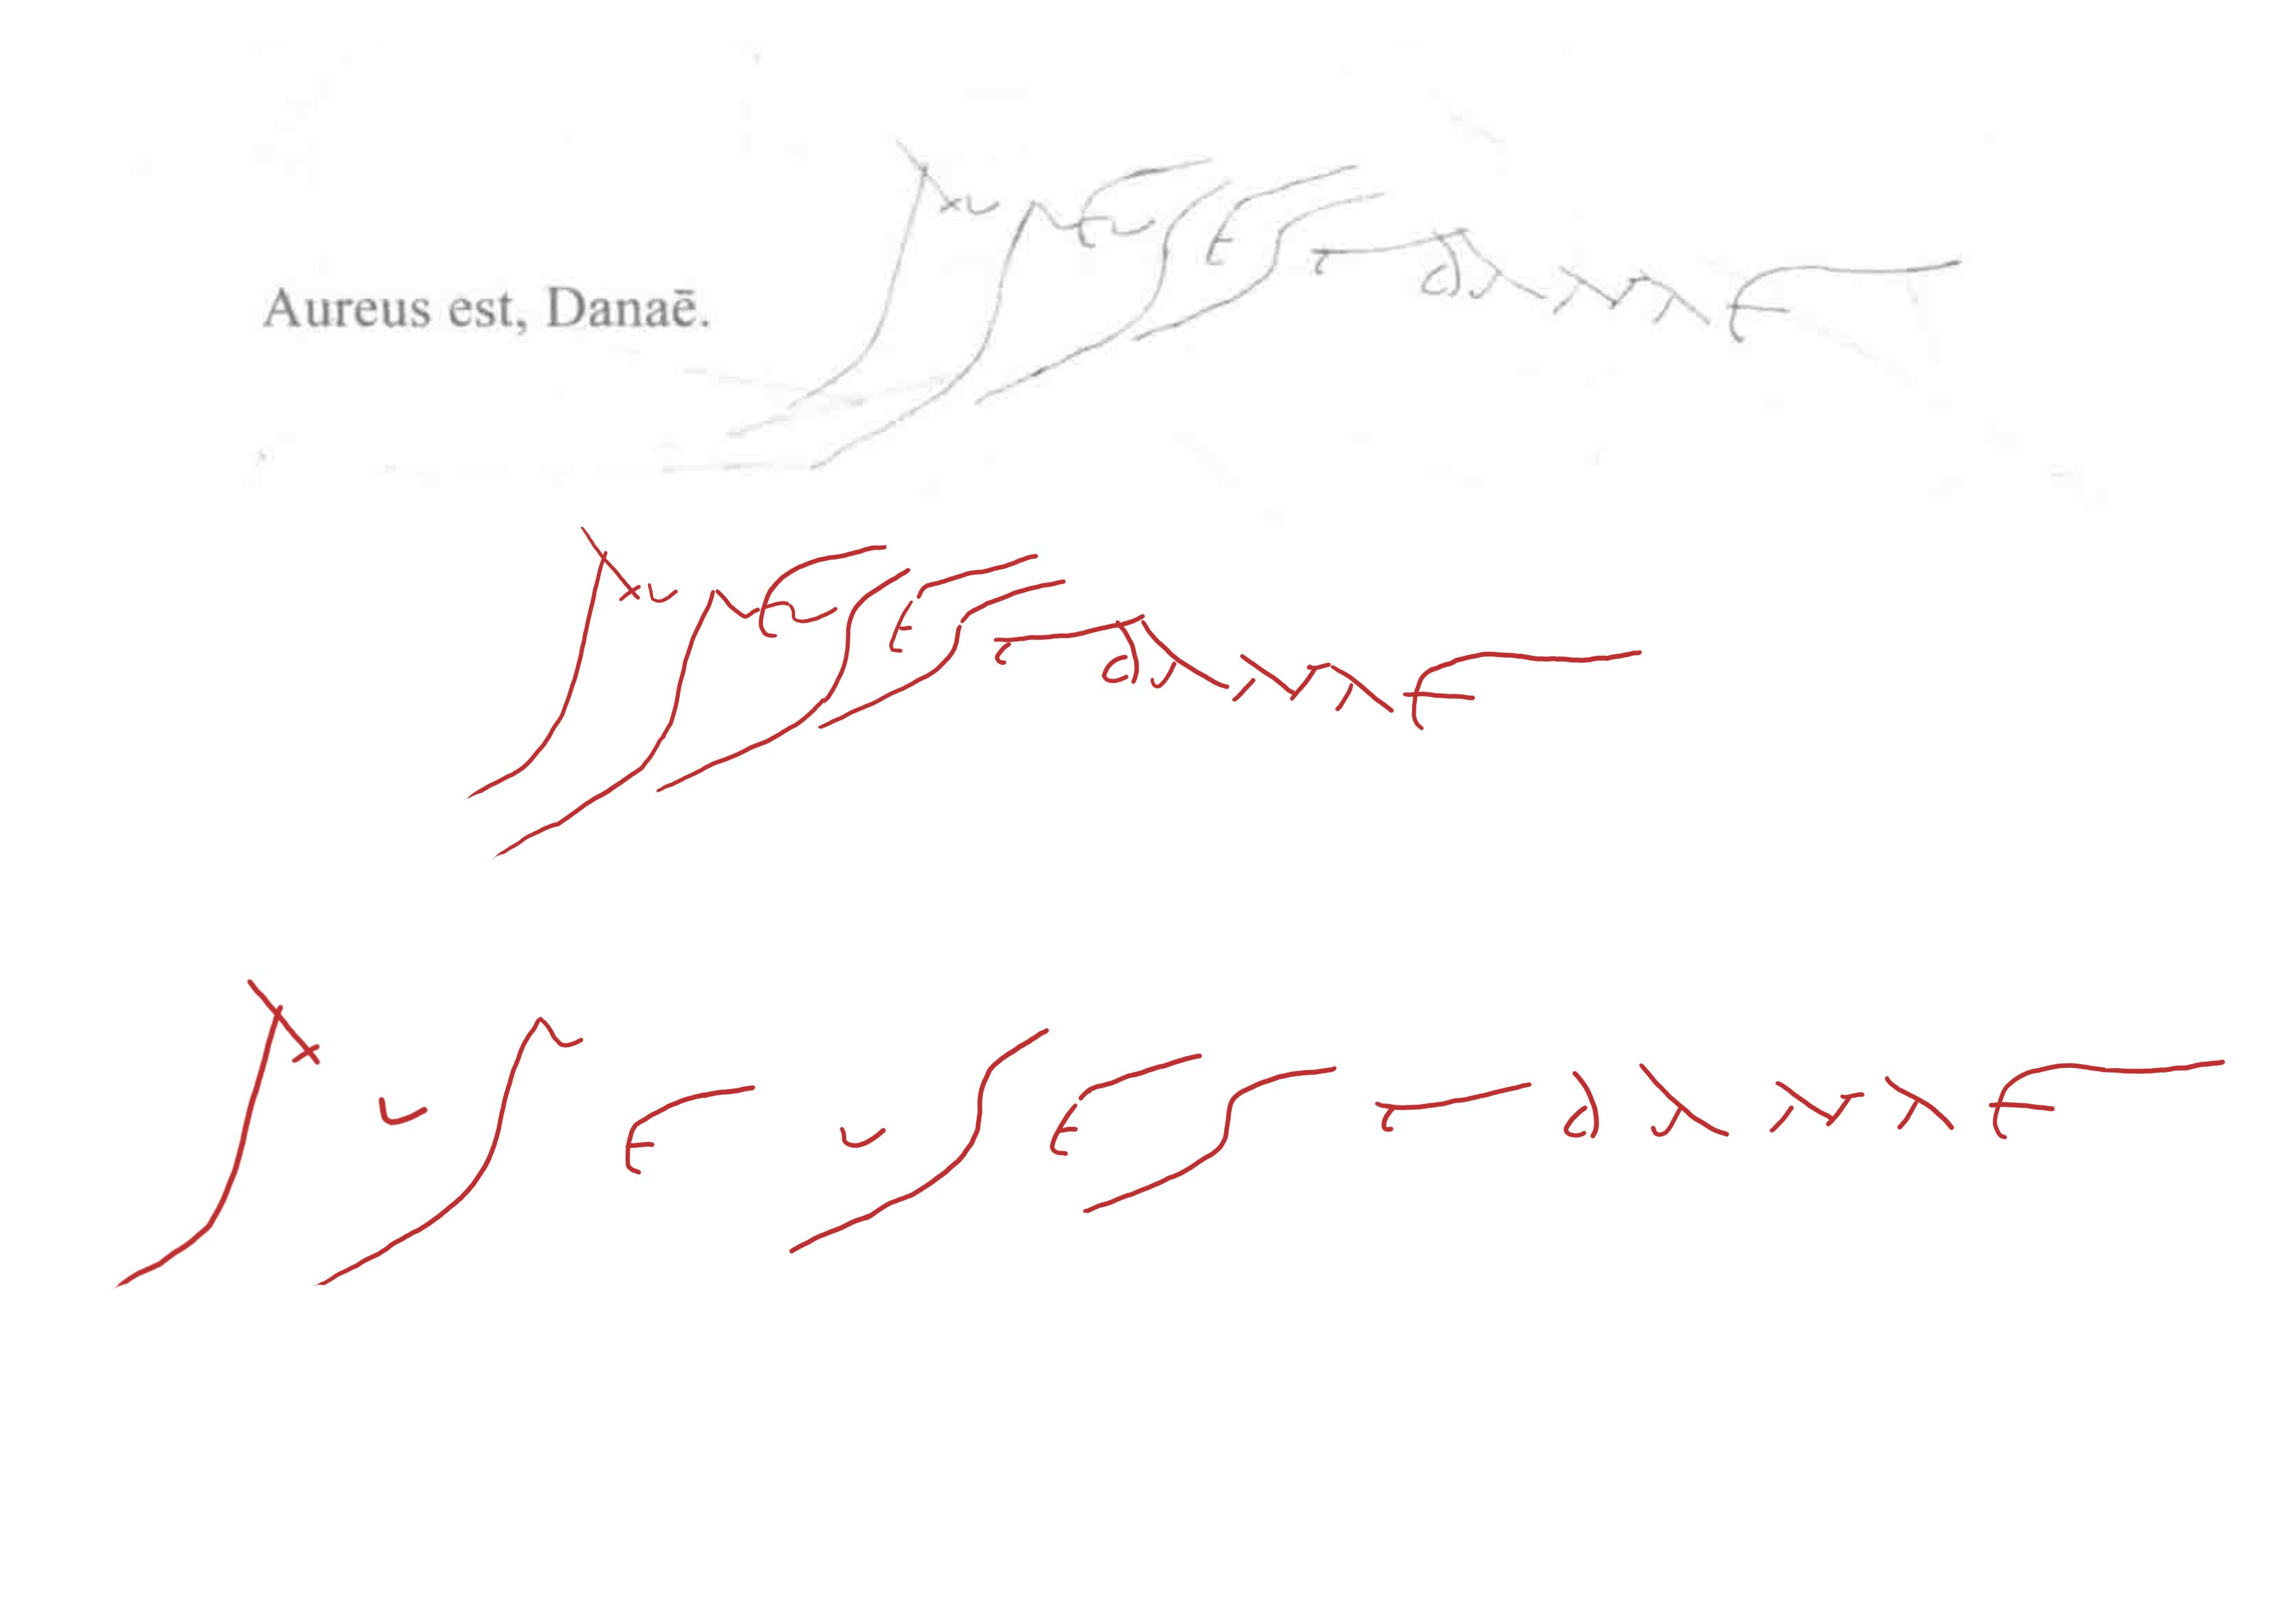 Aureus est, Danaē.
aureus est danae
aureus est danae
a u r e u s e s t d a n a e